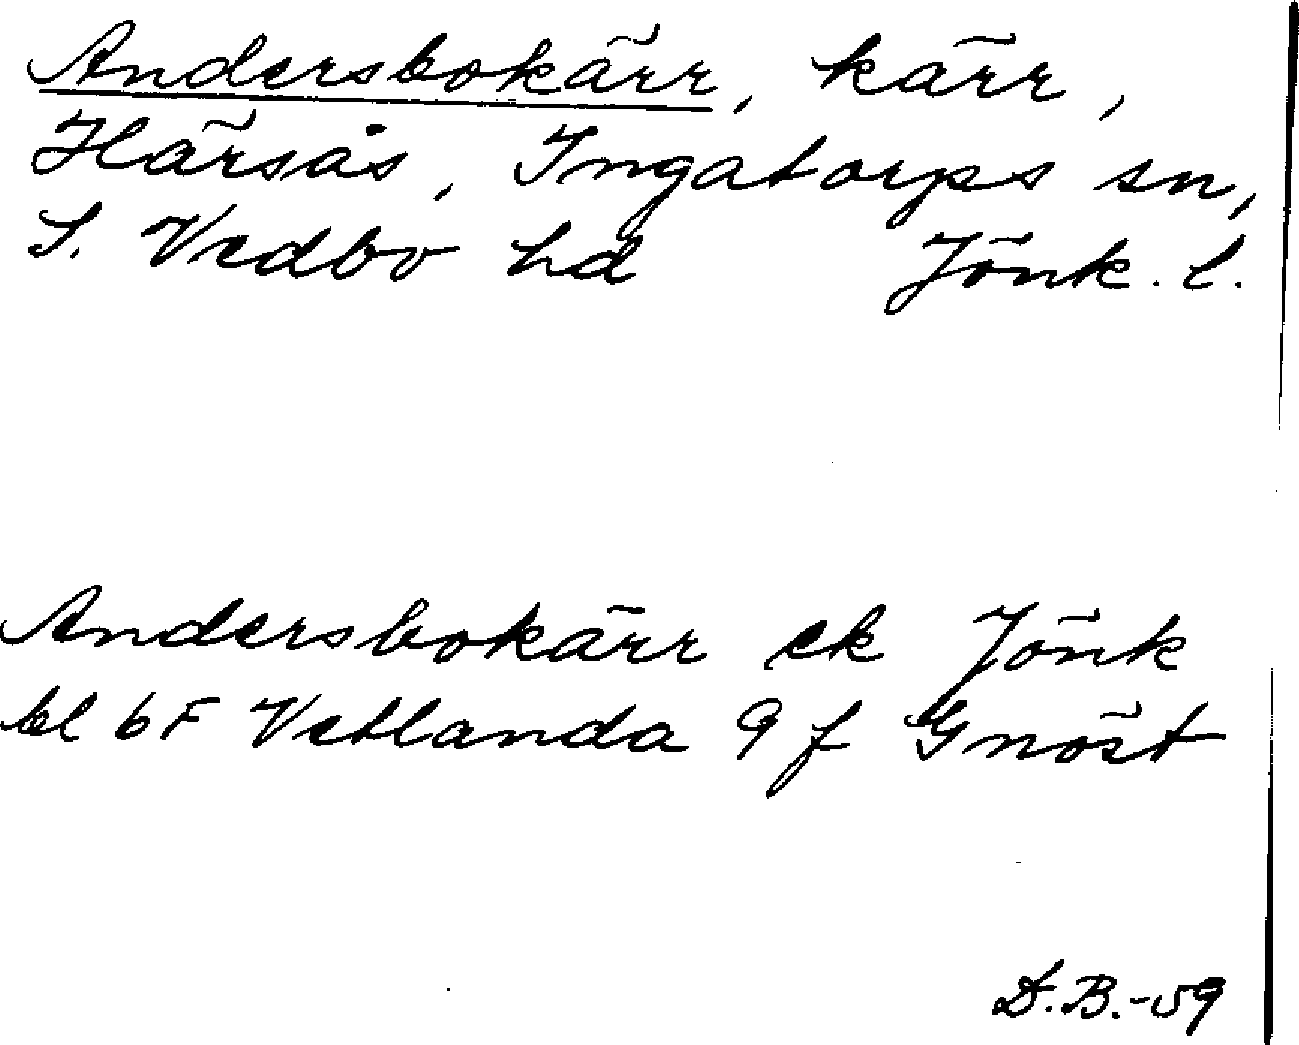 Andersbokärr, kärr,
Härsås, Ingatorps sn,
S. Vedbo hd Jönk. l.
Andersbokärr ek Jönk
bl 6F Vetlanda 9 f Gnöst
D.B.-59